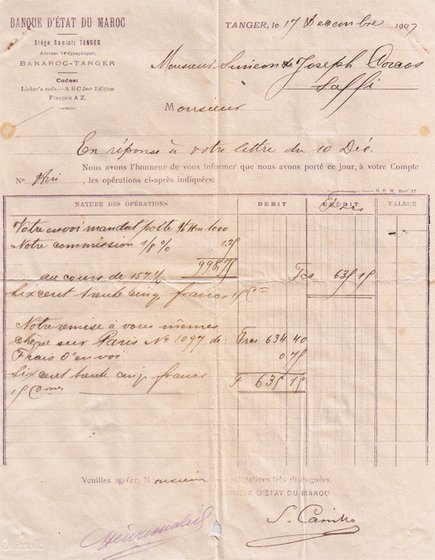 BANQUE D'ÉTAT DU MAROC
Siège Social: TANGER
Adresse Télégraphique:
BANAROC-TANGER
Codes:
Lieber's code.-A B C 5me Edition
Français A Z.
TANGER, le 17 Décembre 1907
Monsieur Simeon de Joseph
Saffi
Monsieur
En réponse à votre lettre du 10 Déc.
Nous avons l'honneur de vous informer que nous avons porté ce jour, à votre Compte
No. , les opérations ci-après indiquées:
NATURE DES OPÉRATIONS DÉBIT CRÉDIT VALEUR
Votre envoi mandat poste 1000
Notre commission 1/8 % 1.25
998.75
au cours de 157 % Fcs 635 15
Six cent trente cinq francs 15 c
Notre remise à vous mêmes
chèque sur Paris No 1097 de: Frcs 634 40
Frais d'envoi 0.75
Six cent trente cinq francs F 635 15
15 cmes
Veuillez agréer, Monsieur salutations très distinguées.
BANQUE D'ÉTAT DU MAROC